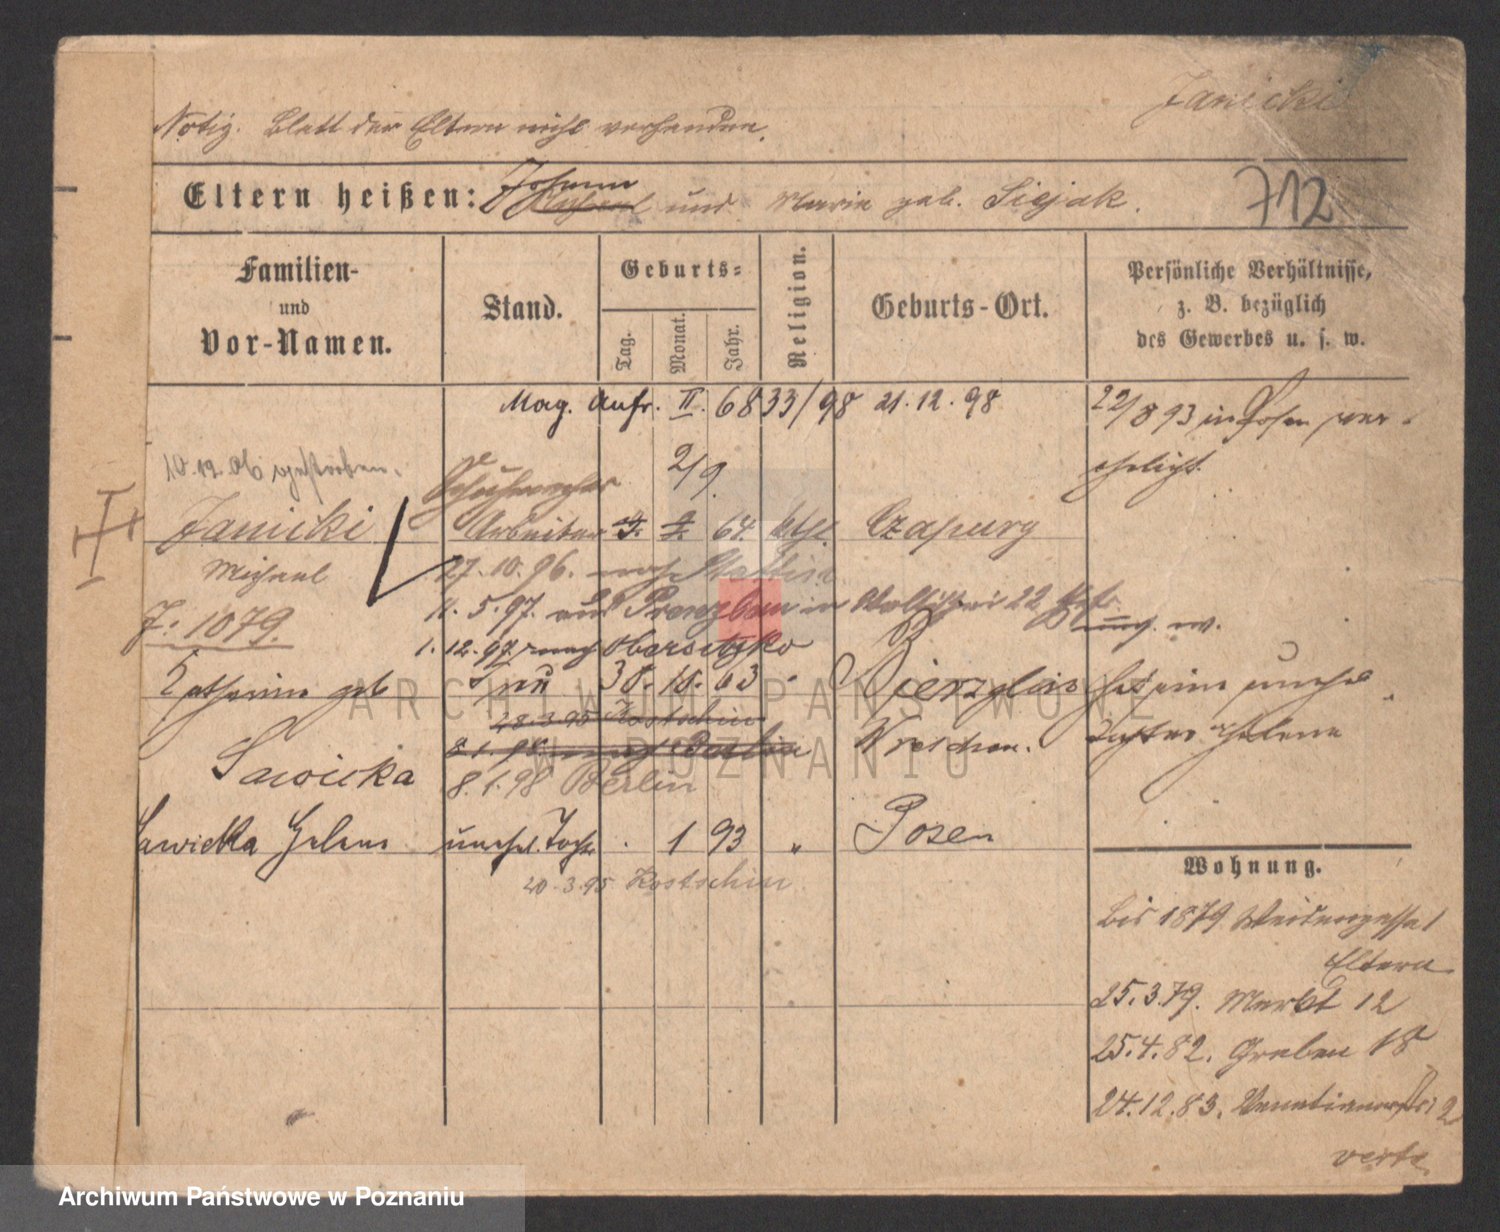 Janicki
Notiz. Blatt der Eltern nicht vorhanden.
Eltern heißen: Johann Michael und Maria geb. Siejak.
712
Familien- und Vor-Namen.
Stand.
Geburts-
Tag.
Monat.
Jahr.
Religion.
Geburts-Ort.
Persönliche Verhältnisse, z. B. bezüglich des Gewerbes u. s. w.
Mag. Aufr. II. 6833/98 21.12.98
22/8 93 in Posen ver-
ehelicht
10.12.06 gestorben.
2/9.
Janicki
Arbeiter
64. kth. Czapury
Michael
27.10.96. nach Stettin
J: 1079.
11.5.97. aus Prenzlau in Wallischei 22
1.12.97 nach Obersitzko
Katharina geb
Frau 30. 10. 63 "
Bierzglin
hat eine unehel.
28.3.95 Kostschin
8.1.98 nach Berlin
Wreschen.
Tochter Helene
Sawicka
8.1.98 Berlin
Sawicka Helene
unehel. Tocht. . 1 93 "
Posen
20.3.95 Kostschin
Wohnung.
bis 1879 Weidengasse 1
Eltern
25.3.79. Markt 12
25.4.82. Graben 18
24.12.83. Venetianerstr 2
verte
ARCHIWUM PAŃSTWOWE
W POZNANIU
Archiwum Państwowe w Poznaniu